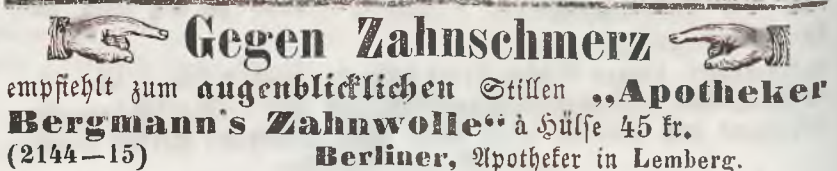 Gegen Zahnschmerz
empfiehlt zum augenblicklichen Stillen „Apotheker
Bergmann's Zahnwolle“ à Hülse 45 kr.
(2144—15) Berliner, Apotheker in Lemberg.